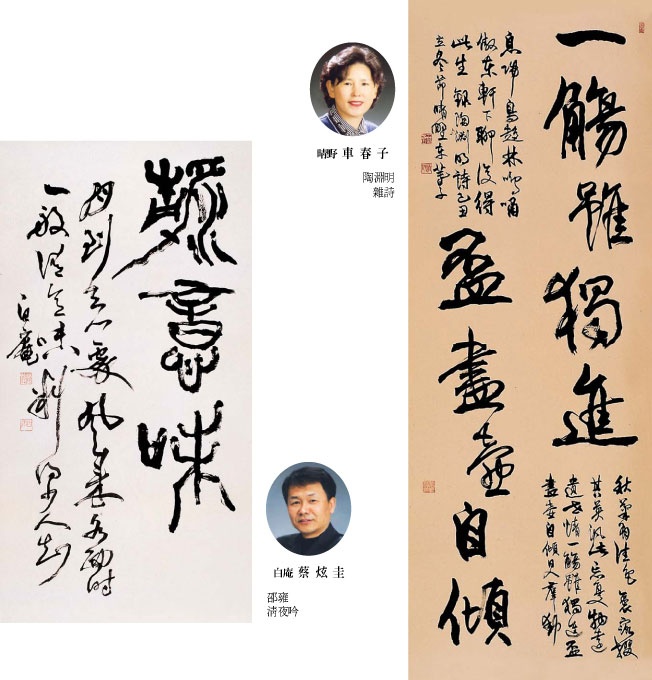 一觴雖獨進
盃盡壺自傾
秋菊有佳色裛露掇
其英汎此忘憂物遠
遺世情一觴雖獨進盃
盡壺自傾日入群動
息歸鳥趨林鳴嘯
傲東軒下聊復得
此生 録陶淵明詩 丑
立冬節晴野車春子
晴野 車春子
陶淵明
雜詩
意味
月到天心處風來水面時
一般清意味料得少人知
白庵
白庵 蔡炫圭
邵雍
淸夜吟